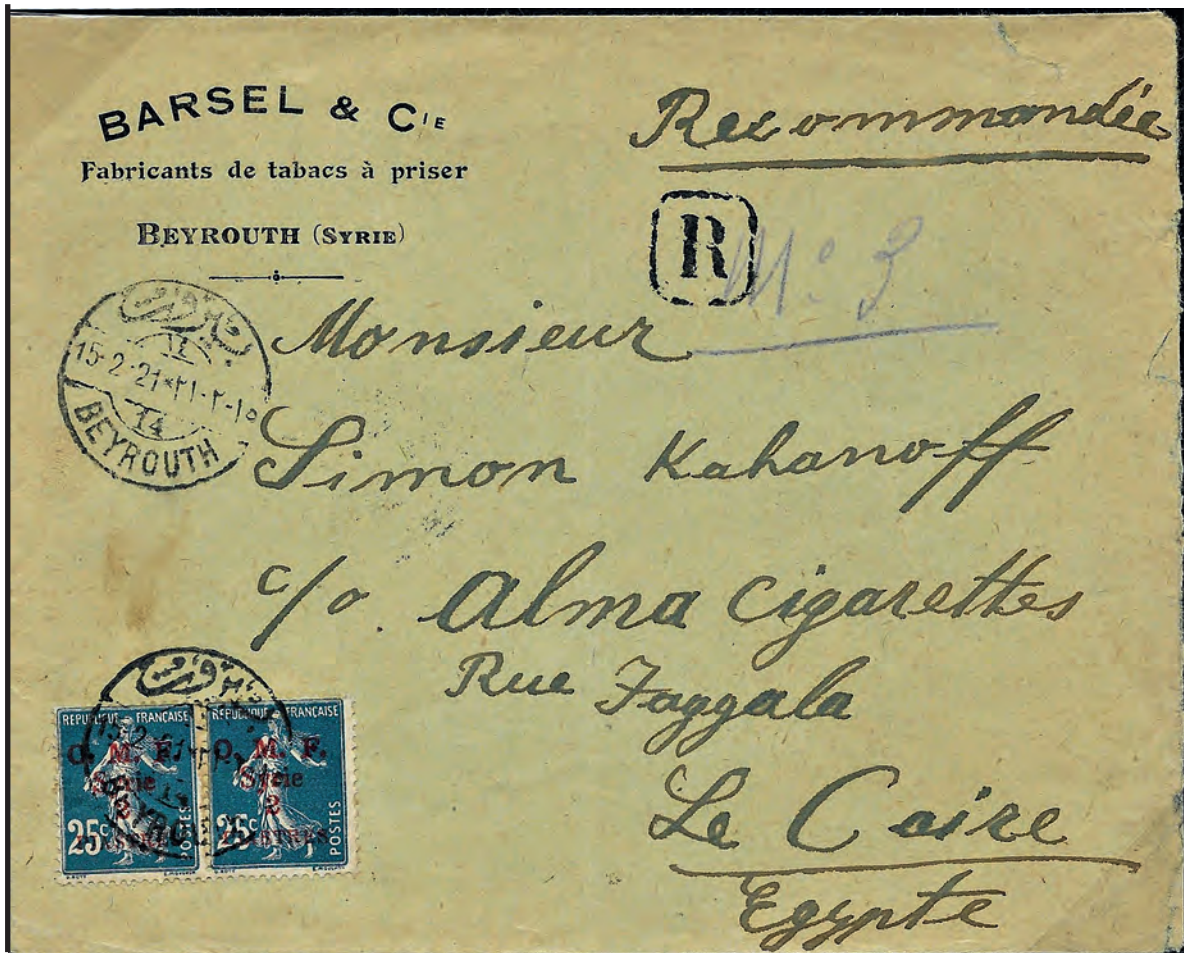 BARSEL & CIE
Fabricants de tabacs à priser
BEYROUTH (SYRIE)
Recommandée
R
Nº 3
15-2-21 * ٢١-٢-١٥
١٤
14
BEYROUTH
Monsieur
Simon Kahanoff
c/o. Alma Cigarettes
Rue Faggala
Le Caire
Egypte
REPUBLIQUE FRANÇAISE
O. M. F.
Syrie
2
PIASTRES
25c
POSTES
REPUBLIQUE FRANÇAISE
O. M. F.
Syrie
2
PIASTRES
25c
POSTES
15-2-21
BEYROUTH